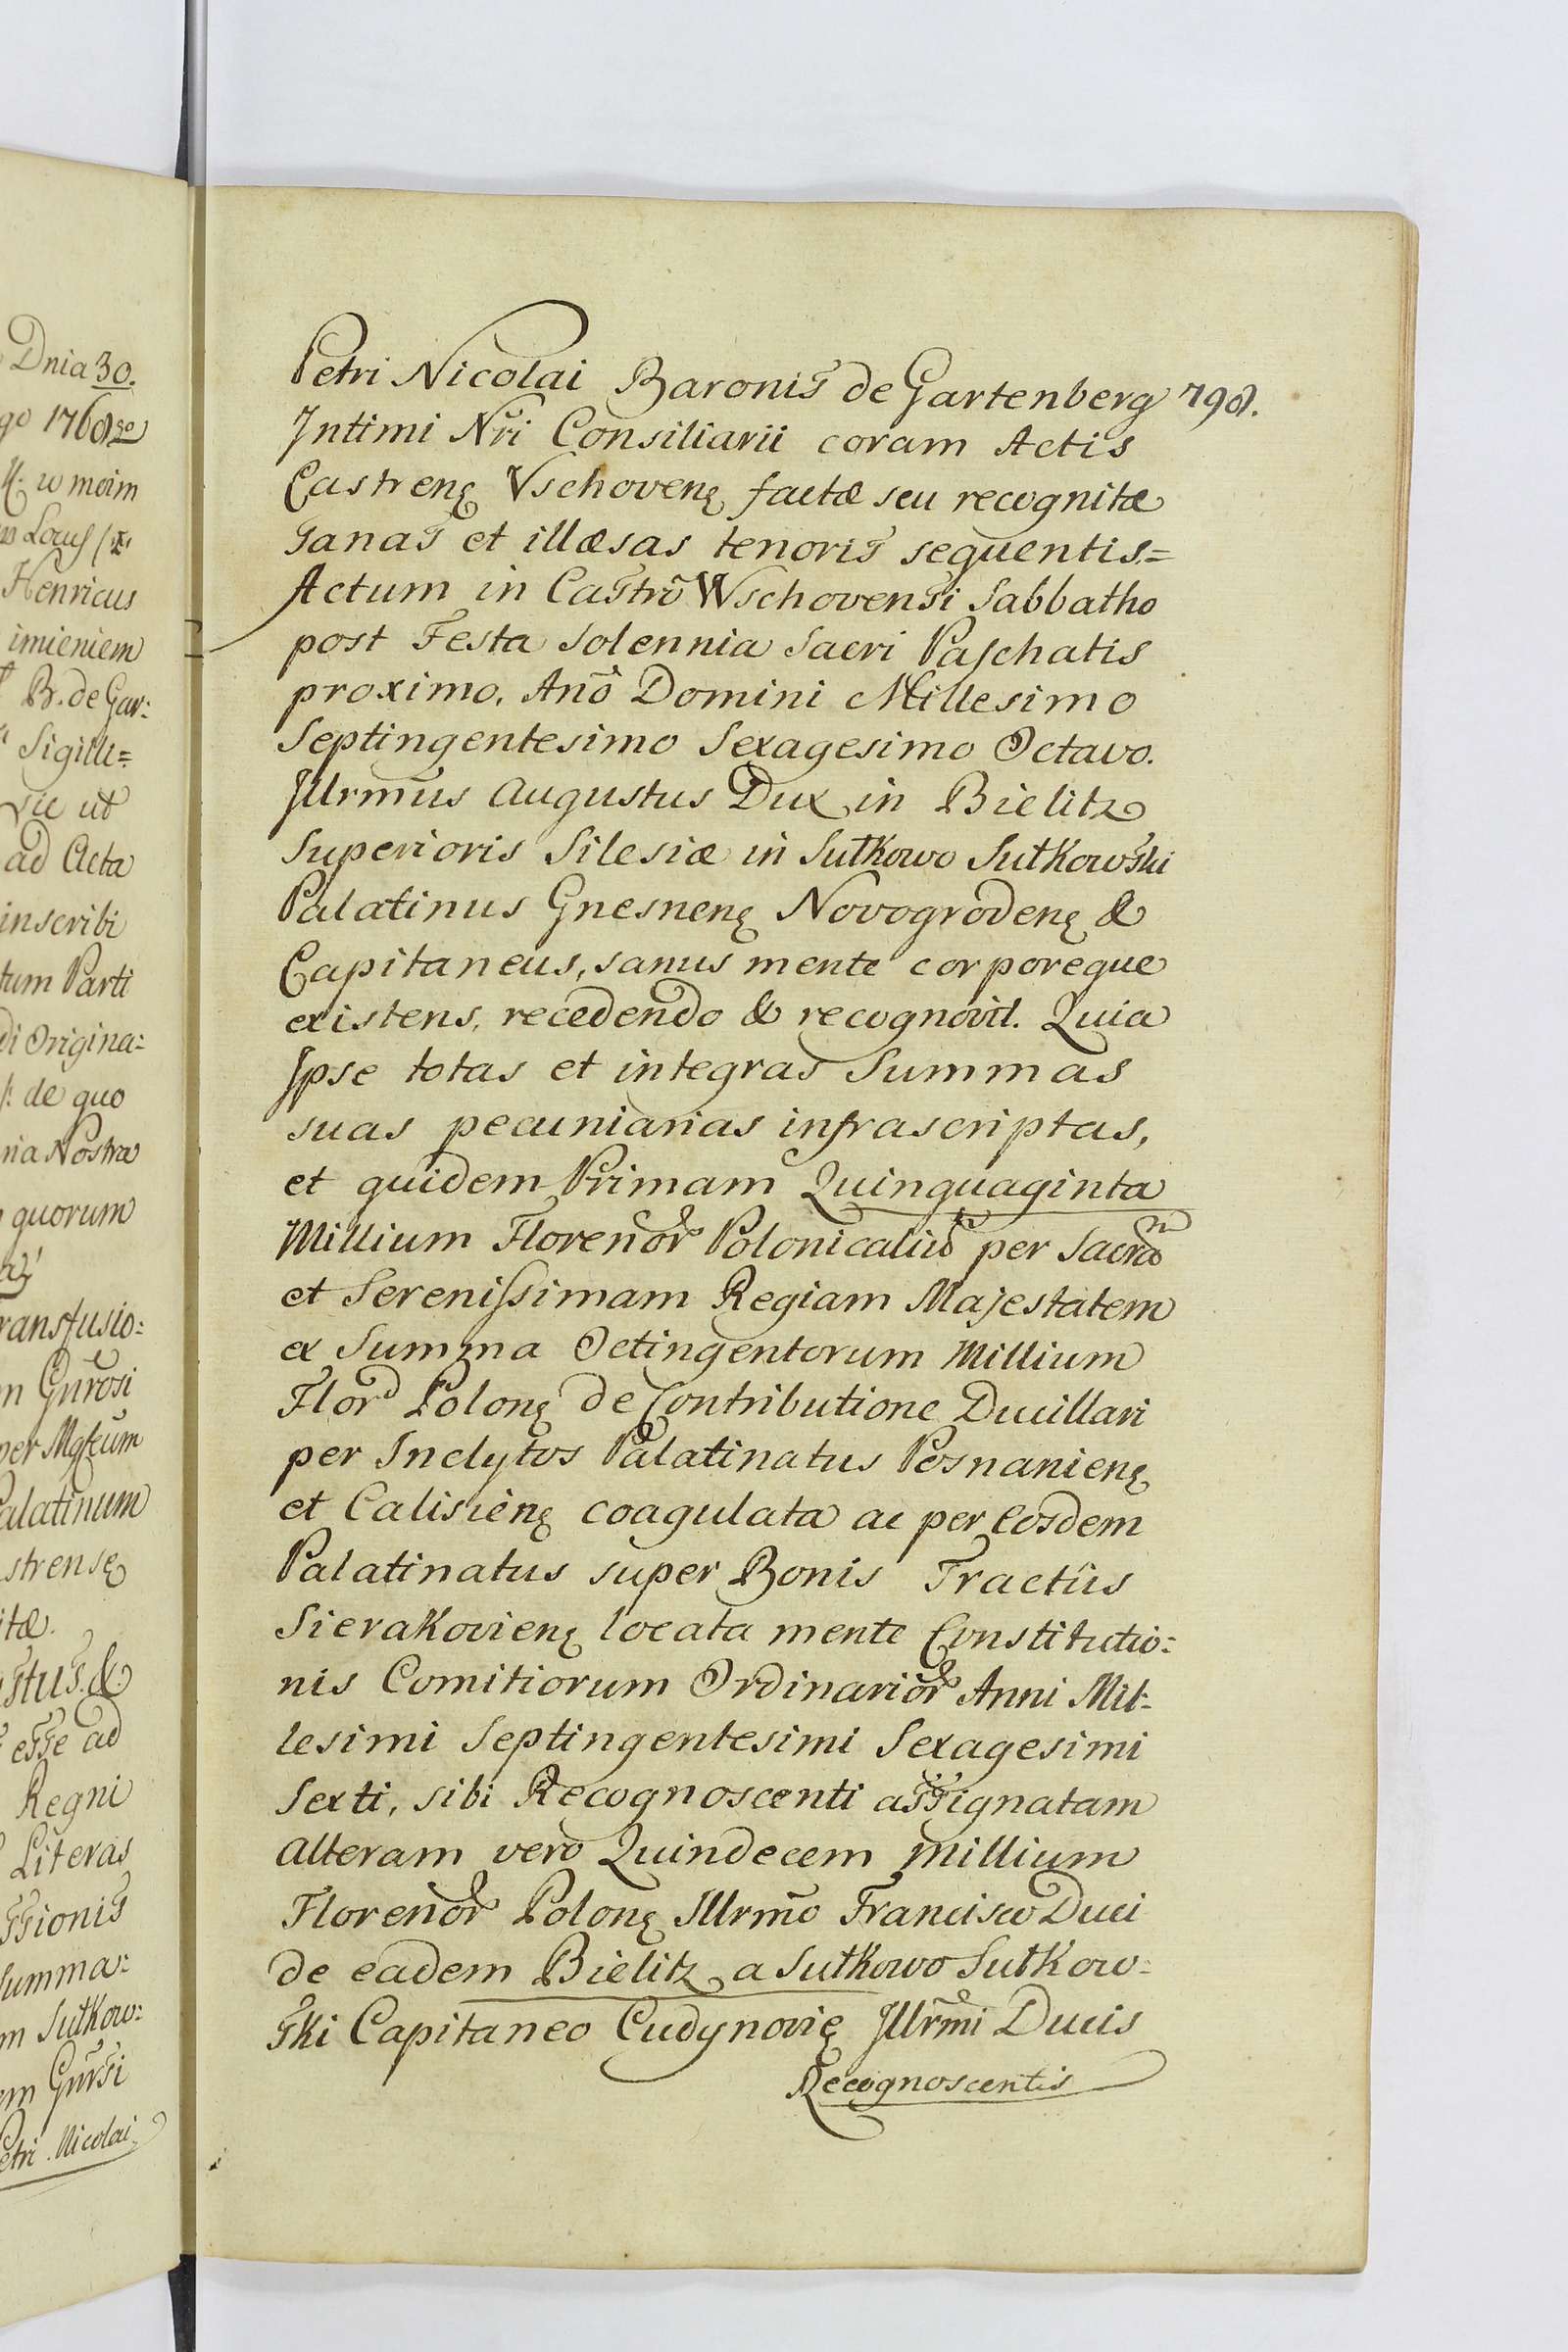 Dnia 30.
go 1768
w moim
Henricus
imieniem
B. de Gar:
Sigill=
ut
ad Acta
inscribi
tum Parti
di Origina:
de quo
ria Nostra
quorum
ransfusio:
m Gnrosi
per Mgfcum
Palatinum
strensę
itæ.
stus &
esse ad
Regni
Literas
ssionis
Summa:
m Sutkow:
em Gnrsi
Petri Nicolai
Petri Nicolai Baronis de Gartenberg 798.
Intimi Nri Consiliarii coram Actis
Castrenę Vschovenę factæ seu recognitæ
sanas et illæsas tenoris sequentis=
Actum in Castro Wschovensi Sabbatho
post Festa Solennia Sacri Paschatis
proximo. Ano Domini Millesimo
Septingentesimo Sexagesimo Octavo.
Illrmus Augustus Dux in Bielitz
Superioris Silesiæ in Sutkowo Sutkowski
Palatinus Gnesnenę Novogrodenę &
Capitaneus, sanus mente corporeque
existens, recedendo & recognovit. Quia
Ipse totas et integras Summas
suas pecuniarias infrascriptas,
et quidem Primam Quinquaginta
Millium Florenor Polonicaliu per Sacra
et Serenissimam Regiam Majestatem
ex Summa Octingentorum Millium
Flor Polonę de Contributione Ducillari
per Inclytos Palatinatus Posnanienę
et Calisienę coagulata ac per Eosdem
Palatinatus super Bonis Tractûs
Sierakovienę locata mente Constitutio:
nis Comitiorum Ordinarior Anni Mil:
lesimi Septingentesimi Sexagesimi
Sexti, sibi Recognoscenti assignatam
alteram vero Quindecem Millium
Florenor Polonę Illrmo Francisco Duci
de eadem Bielitz a Sutkowo Sutkow:
ski Capitaneo Cudynovię Illrmi Ducis
Recognoscentis